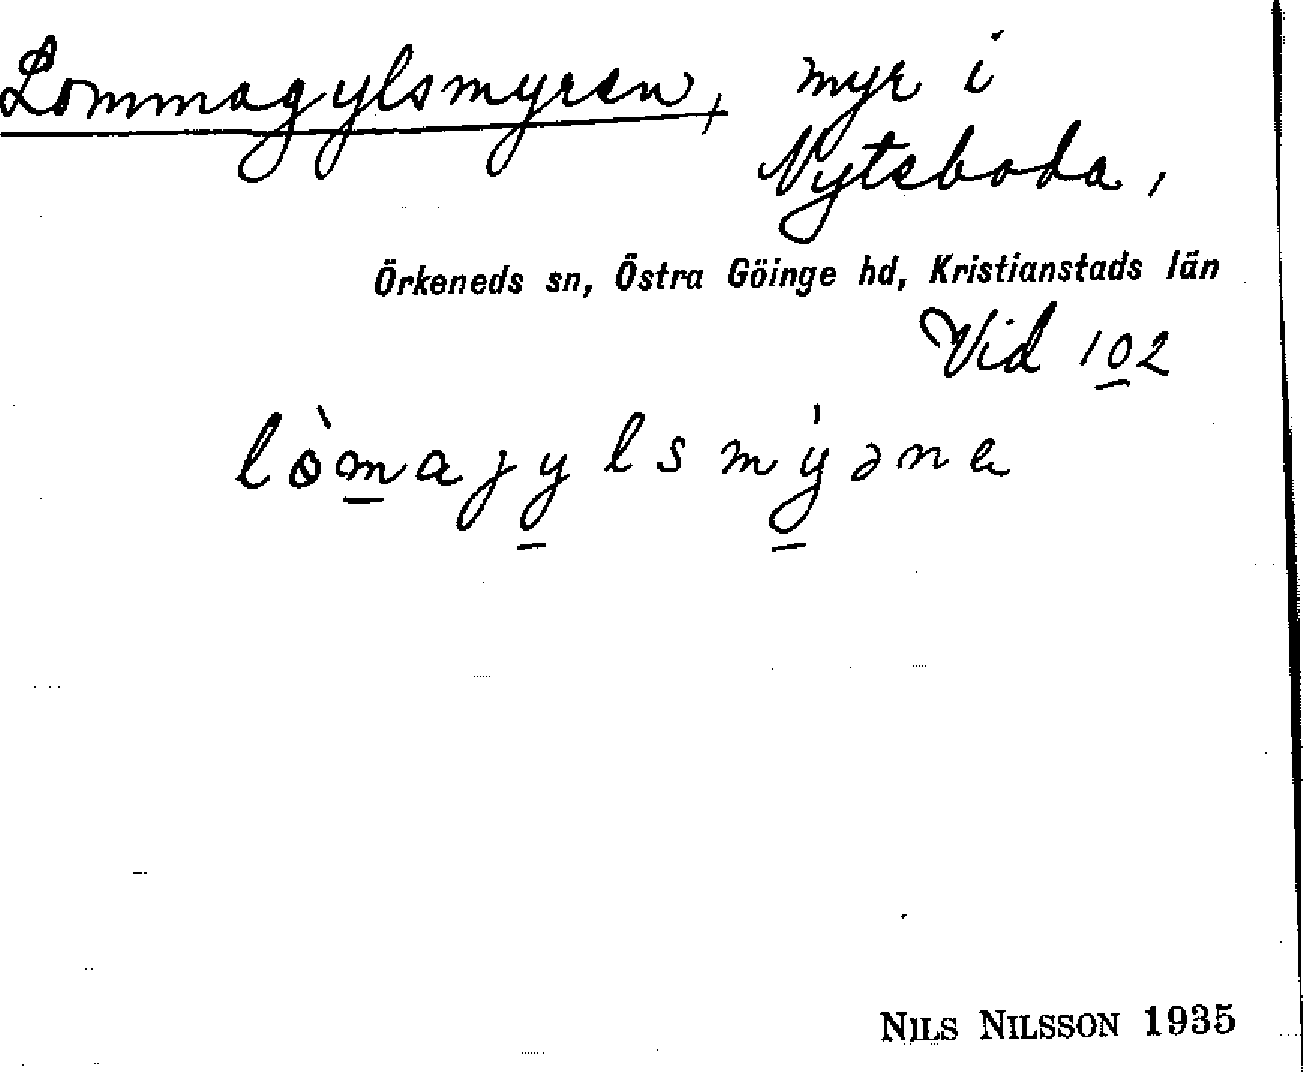 Lommagylsmyren, myr i
Nyteboda,
Örkeneds sn, Östra Göinge hd, Kristianstads län
Vid 102
lòmajylsmýəna
NILS NILSSON 1935